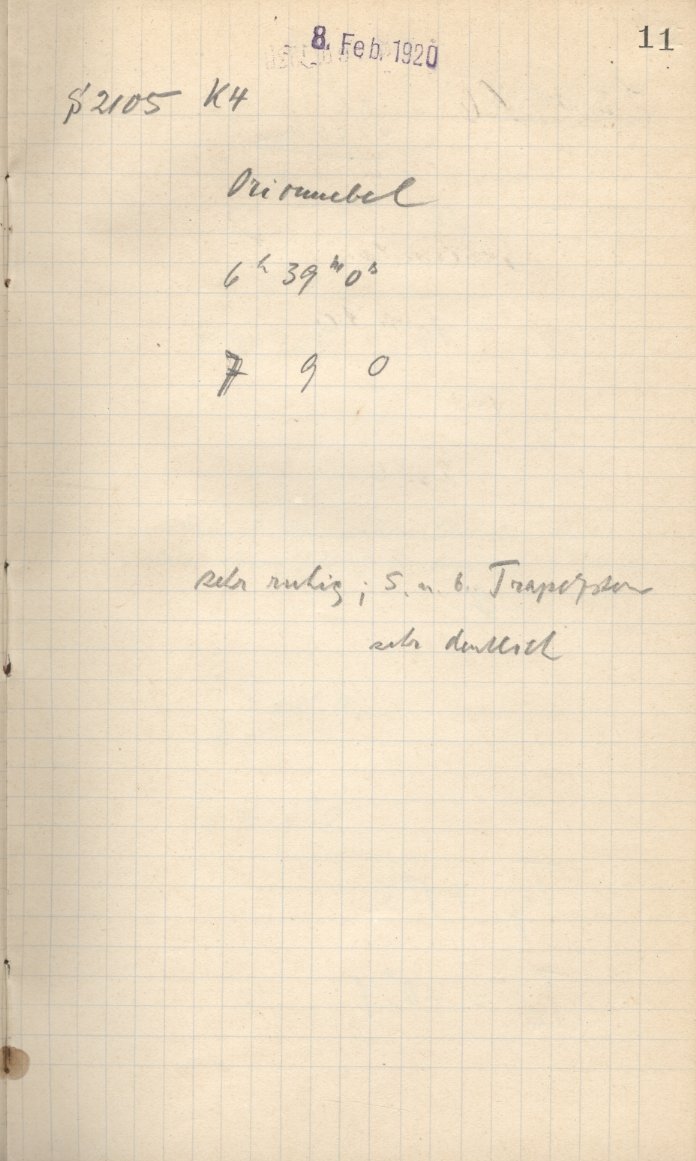 8. Feb. 1920
11
§ 2105 K4
Orionnebel
6ʰ 39ᵐ 0ˢ
7 9 0
sehr ruhig; 5. u. 6. Trapezstern
sehr deutlich